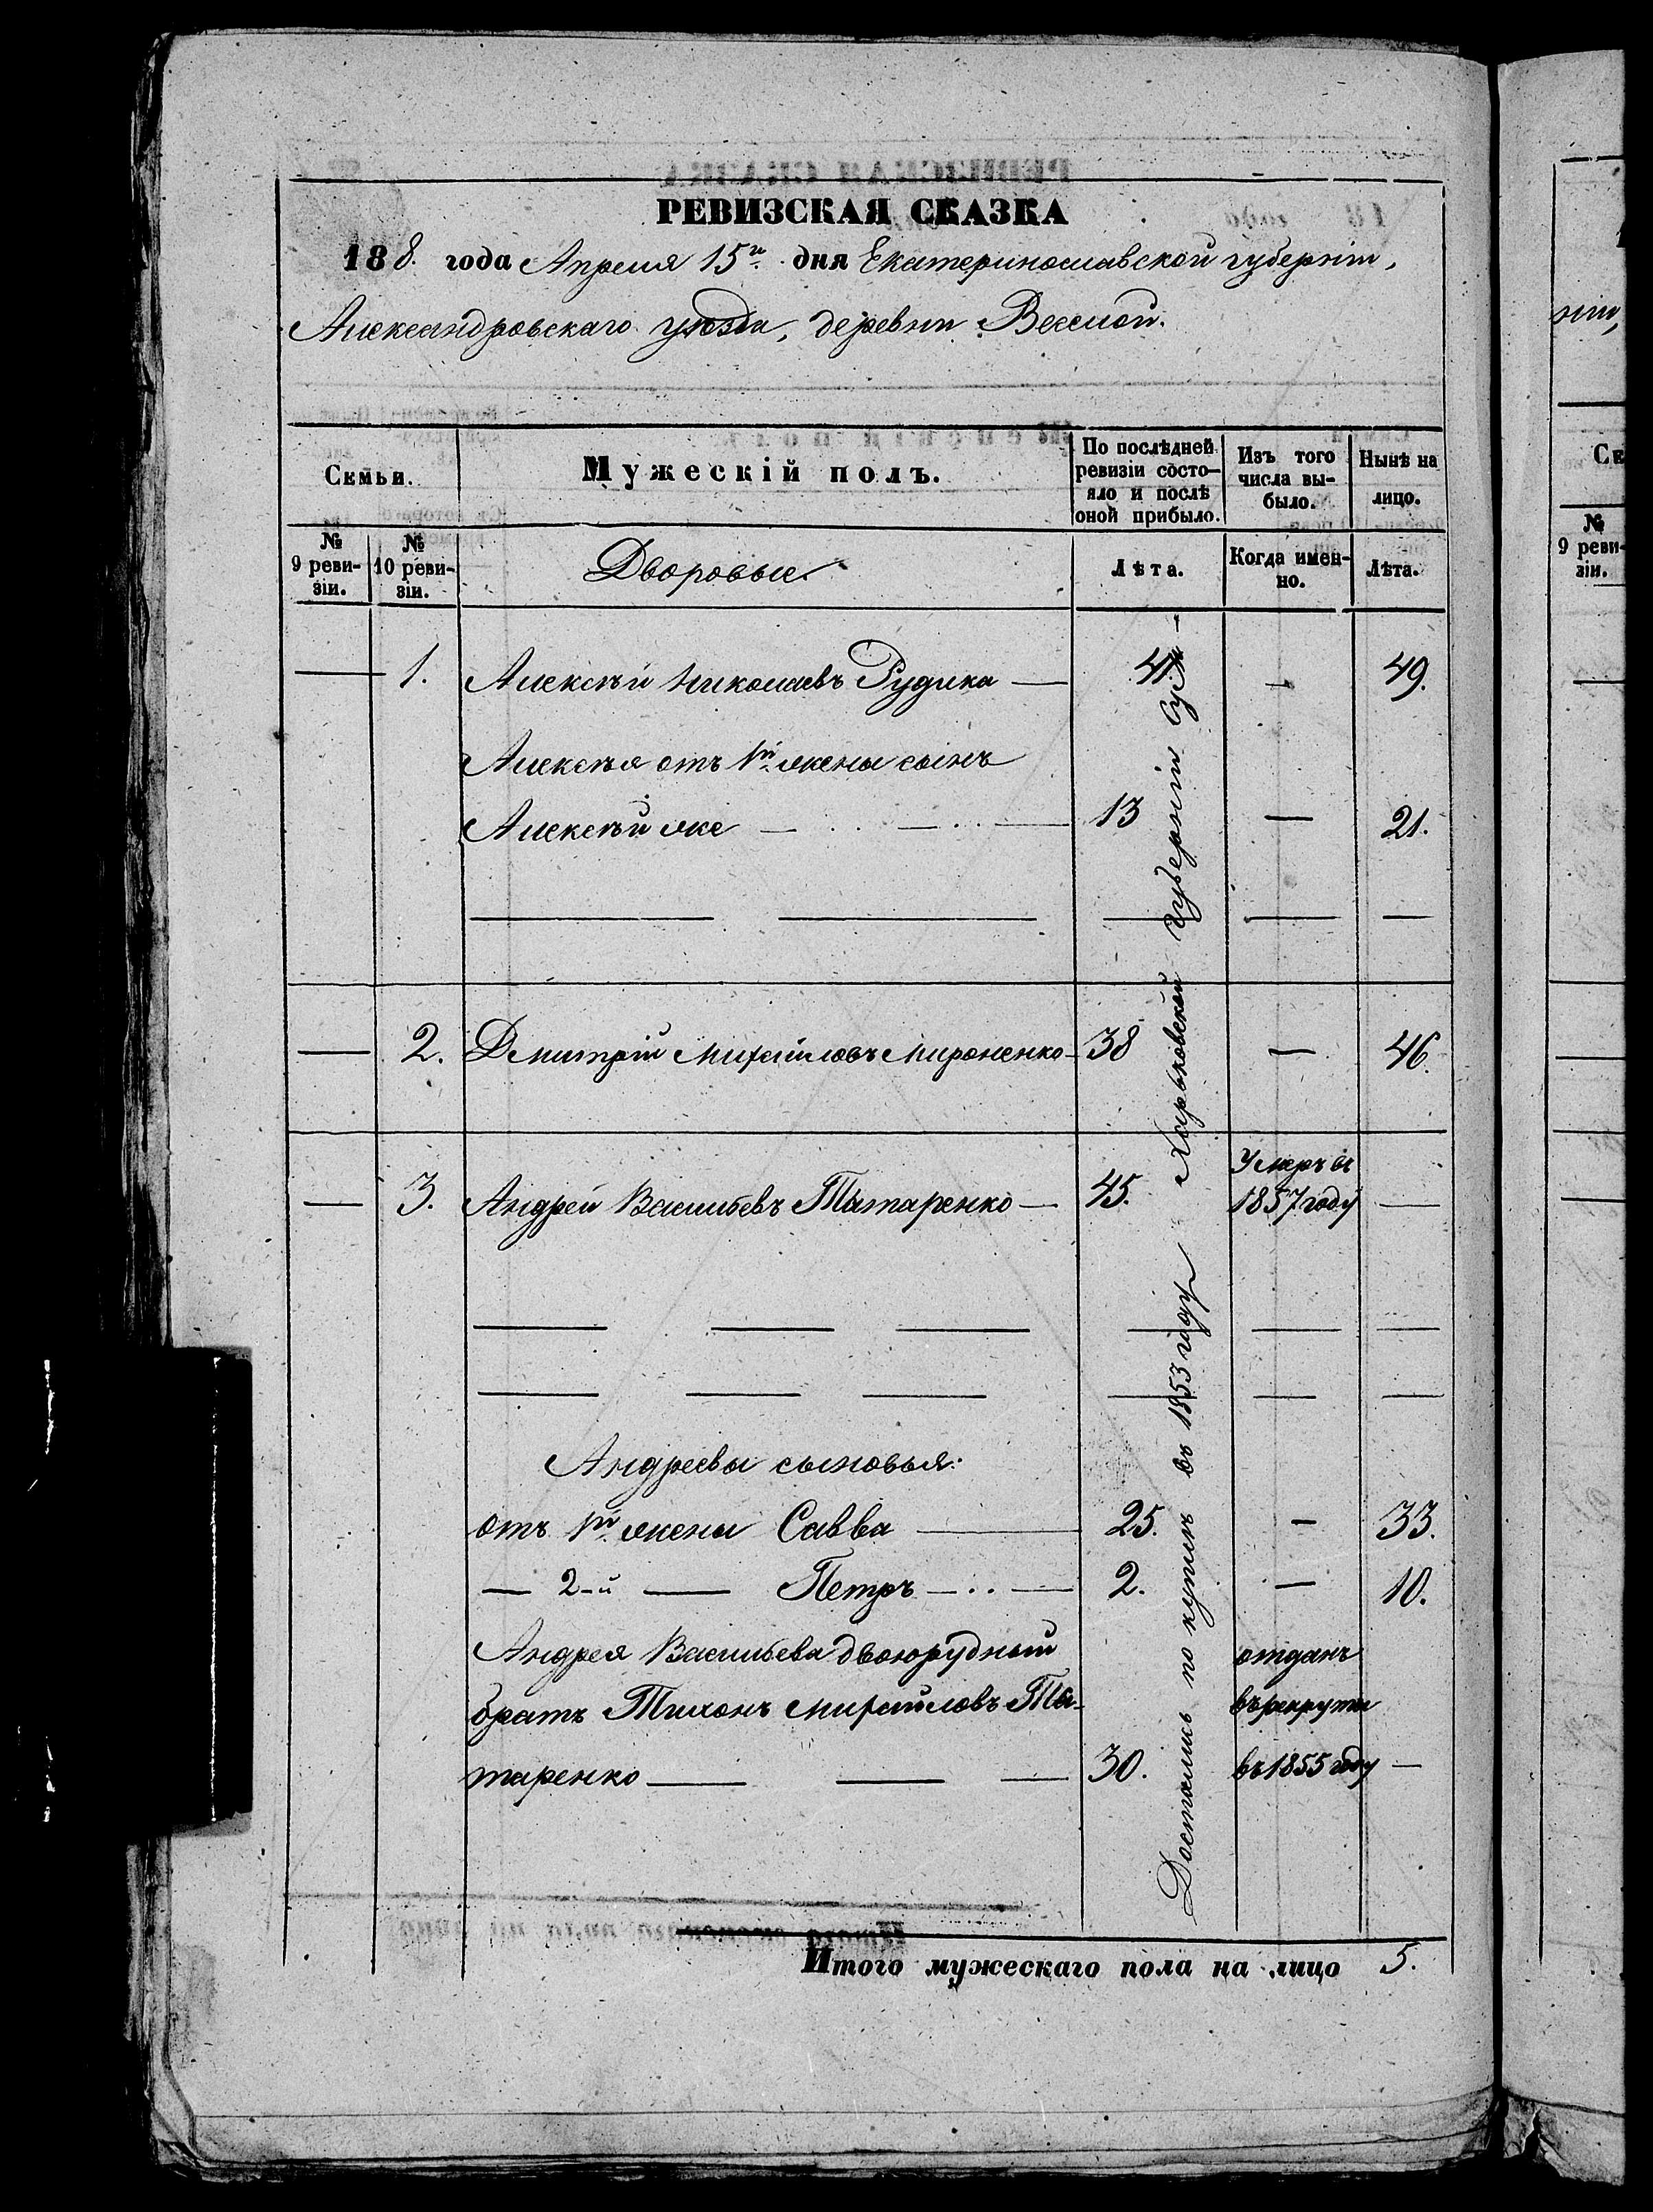 РЕВИЗСКАЯ СКАЗКА
188. года Апреля 15го дня Екатеринославской губерніи,
Александровскаго уѣзда, деревни Веселой.
Семьи.
Мужескій полъ.
По послѣдней ревизіи состо-яло и послѣ оной прибыло.
Изъ того числа вы-было.
Нынѣ на лицо.
№ 9 реви-зіи.
№ 10 реви-зіи.
Дворовые.
Лѣта.
Когда имен-но.
Лѣта.
— 1. Алексѣй Николаевъ Рудика — 41 — 49.
Алексѣя отъ 1й жены сынъ
Алексѣй же — 13 — 21.
— 2. Дмитрій Михайловъ Мироненко — 38 — 46.
Умеръ въ
— 3. Андрей Васильевъ Татаренко — 45. 1857 году —
Андреевы сыновья:
отъ 1й жены Савва — 25. — 33.
— 2-й — Петръ — 2. — 10.
Андрея Васильева двоюродный отданъ
братъ Тихонъ Михайловъ Та- въ рекруты
таренко — 30. въ 1855 году —
Достались по купли въ 1853 году Харьковской губерніи
Итого мужескаго пола на лицо 5.
9 реви-
зіи.